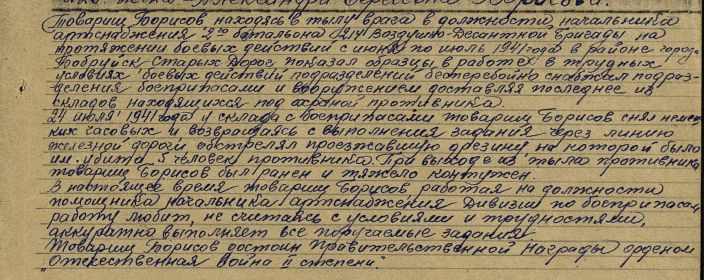 Александр Борисов.
Товарищ Борисов находясь в тылу врага в должности начальника
артснабжения 2го батальона 214 Воздушно-Десантной Бригады на
протяжении боевых действий с июня по июль 1941 года в районе город
Бобруйск Старых Дорог показал образцы в работе, в трудных
условиях боевых действий подразделений бесперебойно снабжал подраз-
деления боеприпасами и вооружением доставляя последнее из
складов находящихся под охраной противника.
24 июля 1941 года у склада с боеприпасами товарищ Борисов снял немец-
ких часовых и возвращаясь с выполнения задания через линию
железной дороги обстрелял проезжавшую дрезину на которой было
им убито 5 человек противника. При выходе из тыла противника
товарищ Борисов был ранен и тяжело контужен.
В настоящее время товарищ Борисов работая на должности
помощника начальника артснабжения Дивизии по боеприпасам
работу любит, не считаясь с условиями и трудностями,
аккуратно выполняет все поручаемые задания
Товарищ Борисов достоин Правительственной Награды орденом
"Отечественная Война II степени."